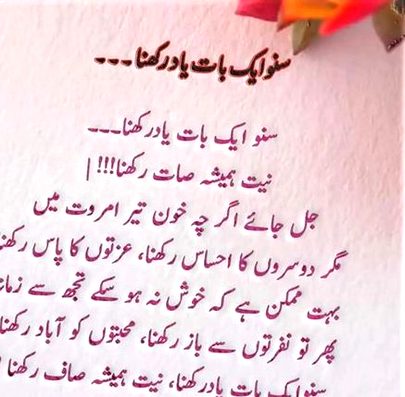 سنو ایک بات یاد رکھنا ۔۔۔
سنو ایک بات یاد رکھنا۔۔۔
نیت ہمیشہ صات رکھنا!!! |
جل جائے اگر چہ خون تیر امروت میں
مگر دوسروں کا احساس رکھنا، عزتوں کا پاس رکھنا
بہت ممکن ہے کہ خوش نہ ہو سکے تجھ سے
پھر تو نفرتوں سے باز رکھنا، محبتوں کو آباد رکھنا
سنو ایک بات یاد رکھنا، نیت ہمیشہ صاف رکھنا